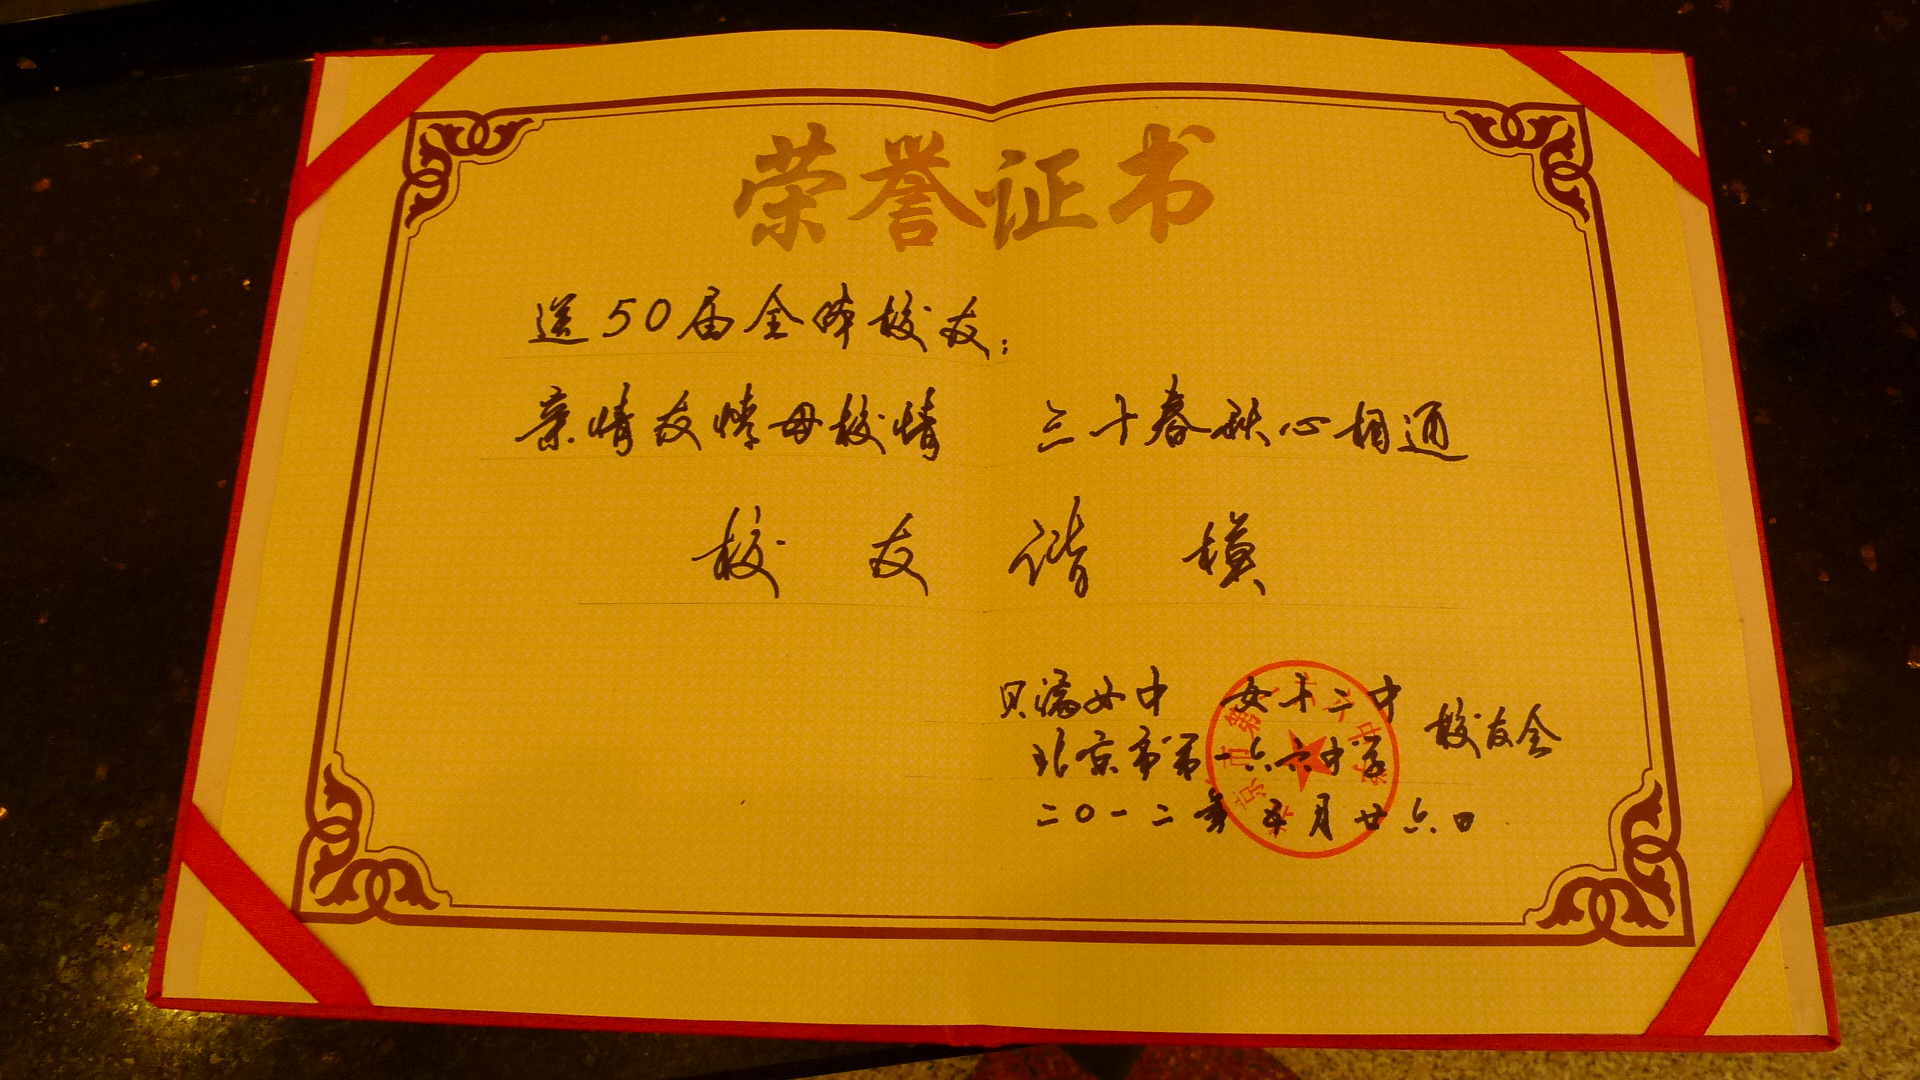 荣誉证书
送50届全体校友:
亲情友情母校情 三十春秋心相通
校友谐模
贝满女中 女十二中
北京市第一六六中学 校友会
二〇一二年五月廿六日